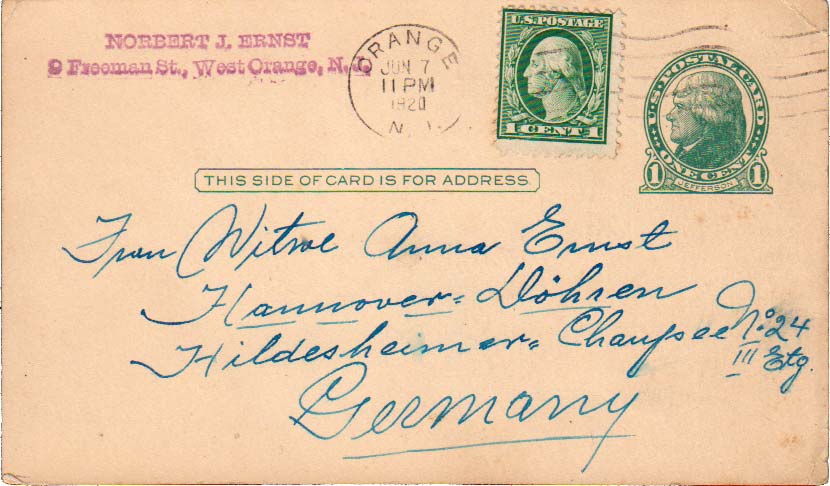 NORBERT J. ERNST
9 Freeman St., West Orange, N. J.
ORANGE
JUN 7
11 PM
1920
N. J.
U.S. POSTAGE
1 CENT 1
U.S. POSTAL CARD
1 ONE CENT 1
JEFFERSON
THIS SIDE OF CARD IS FOR ADDRESS
Frau Witwe Anna Ernst
Hannover-Döhren
Hildesheimer-Chaußee No. 24
III Etg.
Germany